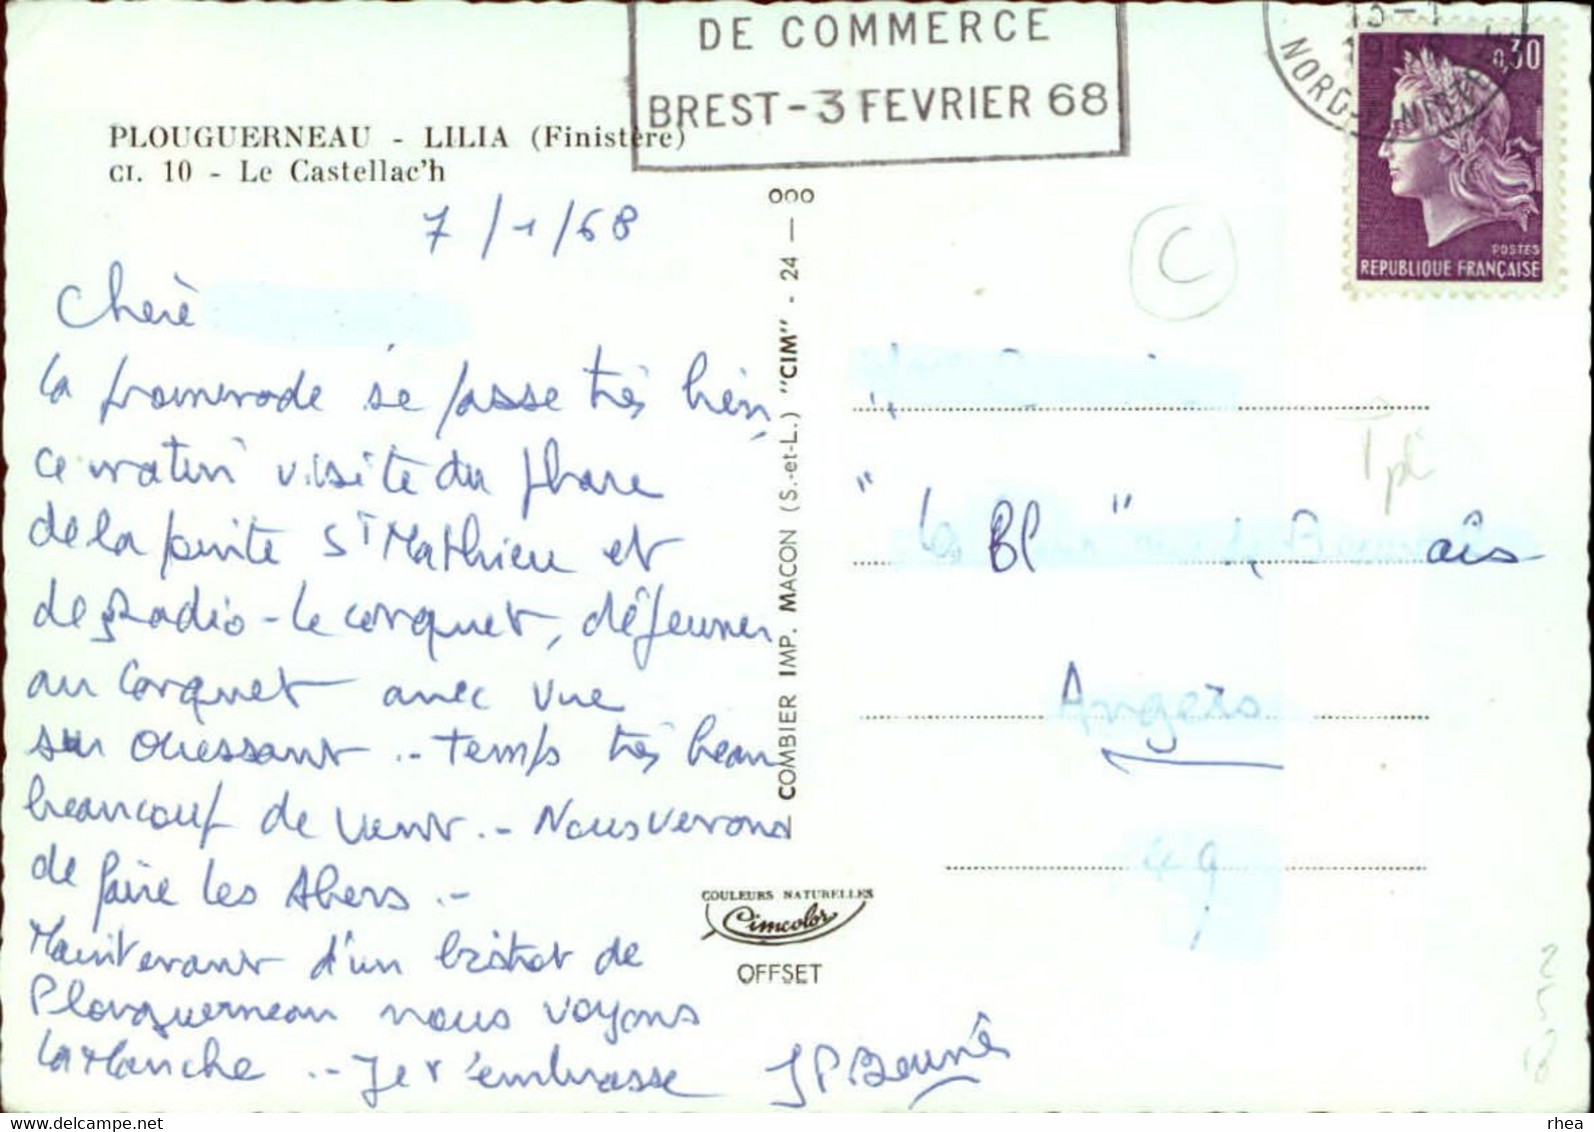 DE COMMERCE
BREST - 3 FEVRIER 68
NORD-FINISTERE
0,30
POSTES
REPUBLIQUE FRANÇAISE
PLOUGUERNEAU - LILIA (Finistère)
CI. 10 - Le Castellac'h
7/1/68
Chère
la promenade se passe très bien,
ce matin visite du phare
de la pointe St Mathieu et
de Radio-le conquet, déjeuner
au conquet avec vue
sur Ouessant .- Temps très beau
beaucoup de vent .- Nous venons
de faire les Abers .-
Maintenant d'un bistrot de
Plouguerneau nous voyons
la Manche .- Je t'embrasse
COMBIER IMP. MACON (S.-et-L.) "CIM" - 24 — 000
COULEURS NATURELLES
Cimcolor
OFFSET
C
Angers
49
rhea